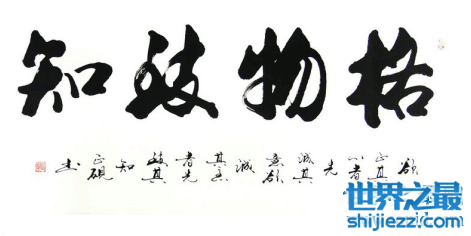 格物致知
欲正其心者先诚其意欲诚其意者先致其知 正砚书
世界之最
shijiezz.com